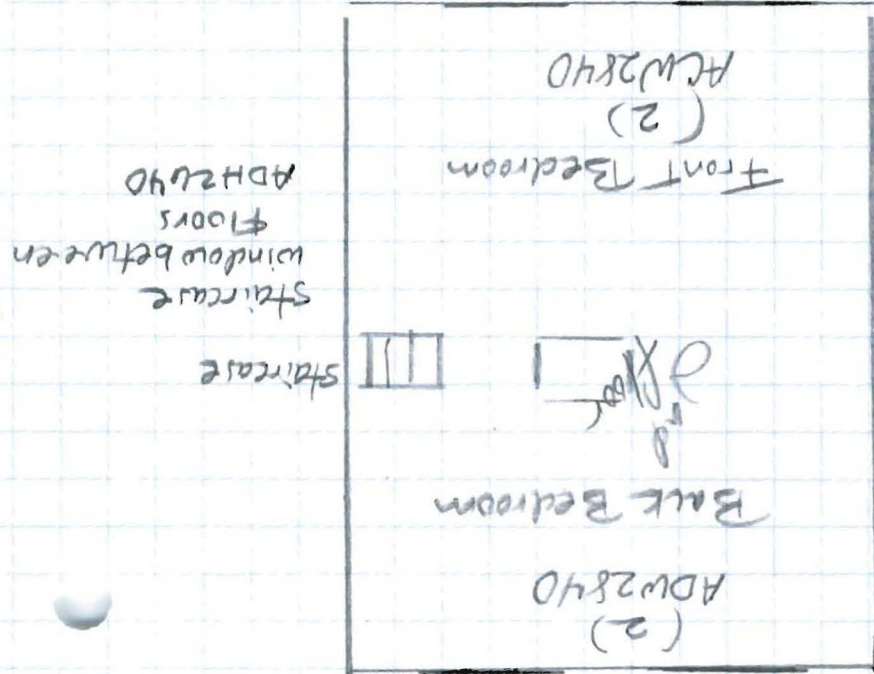 (2)
ADW2840
Back Bedroom
2nd
floor
staircase
staircase
window between
Floors
ADH2640
Front Bedroom
(2)
ACW2840